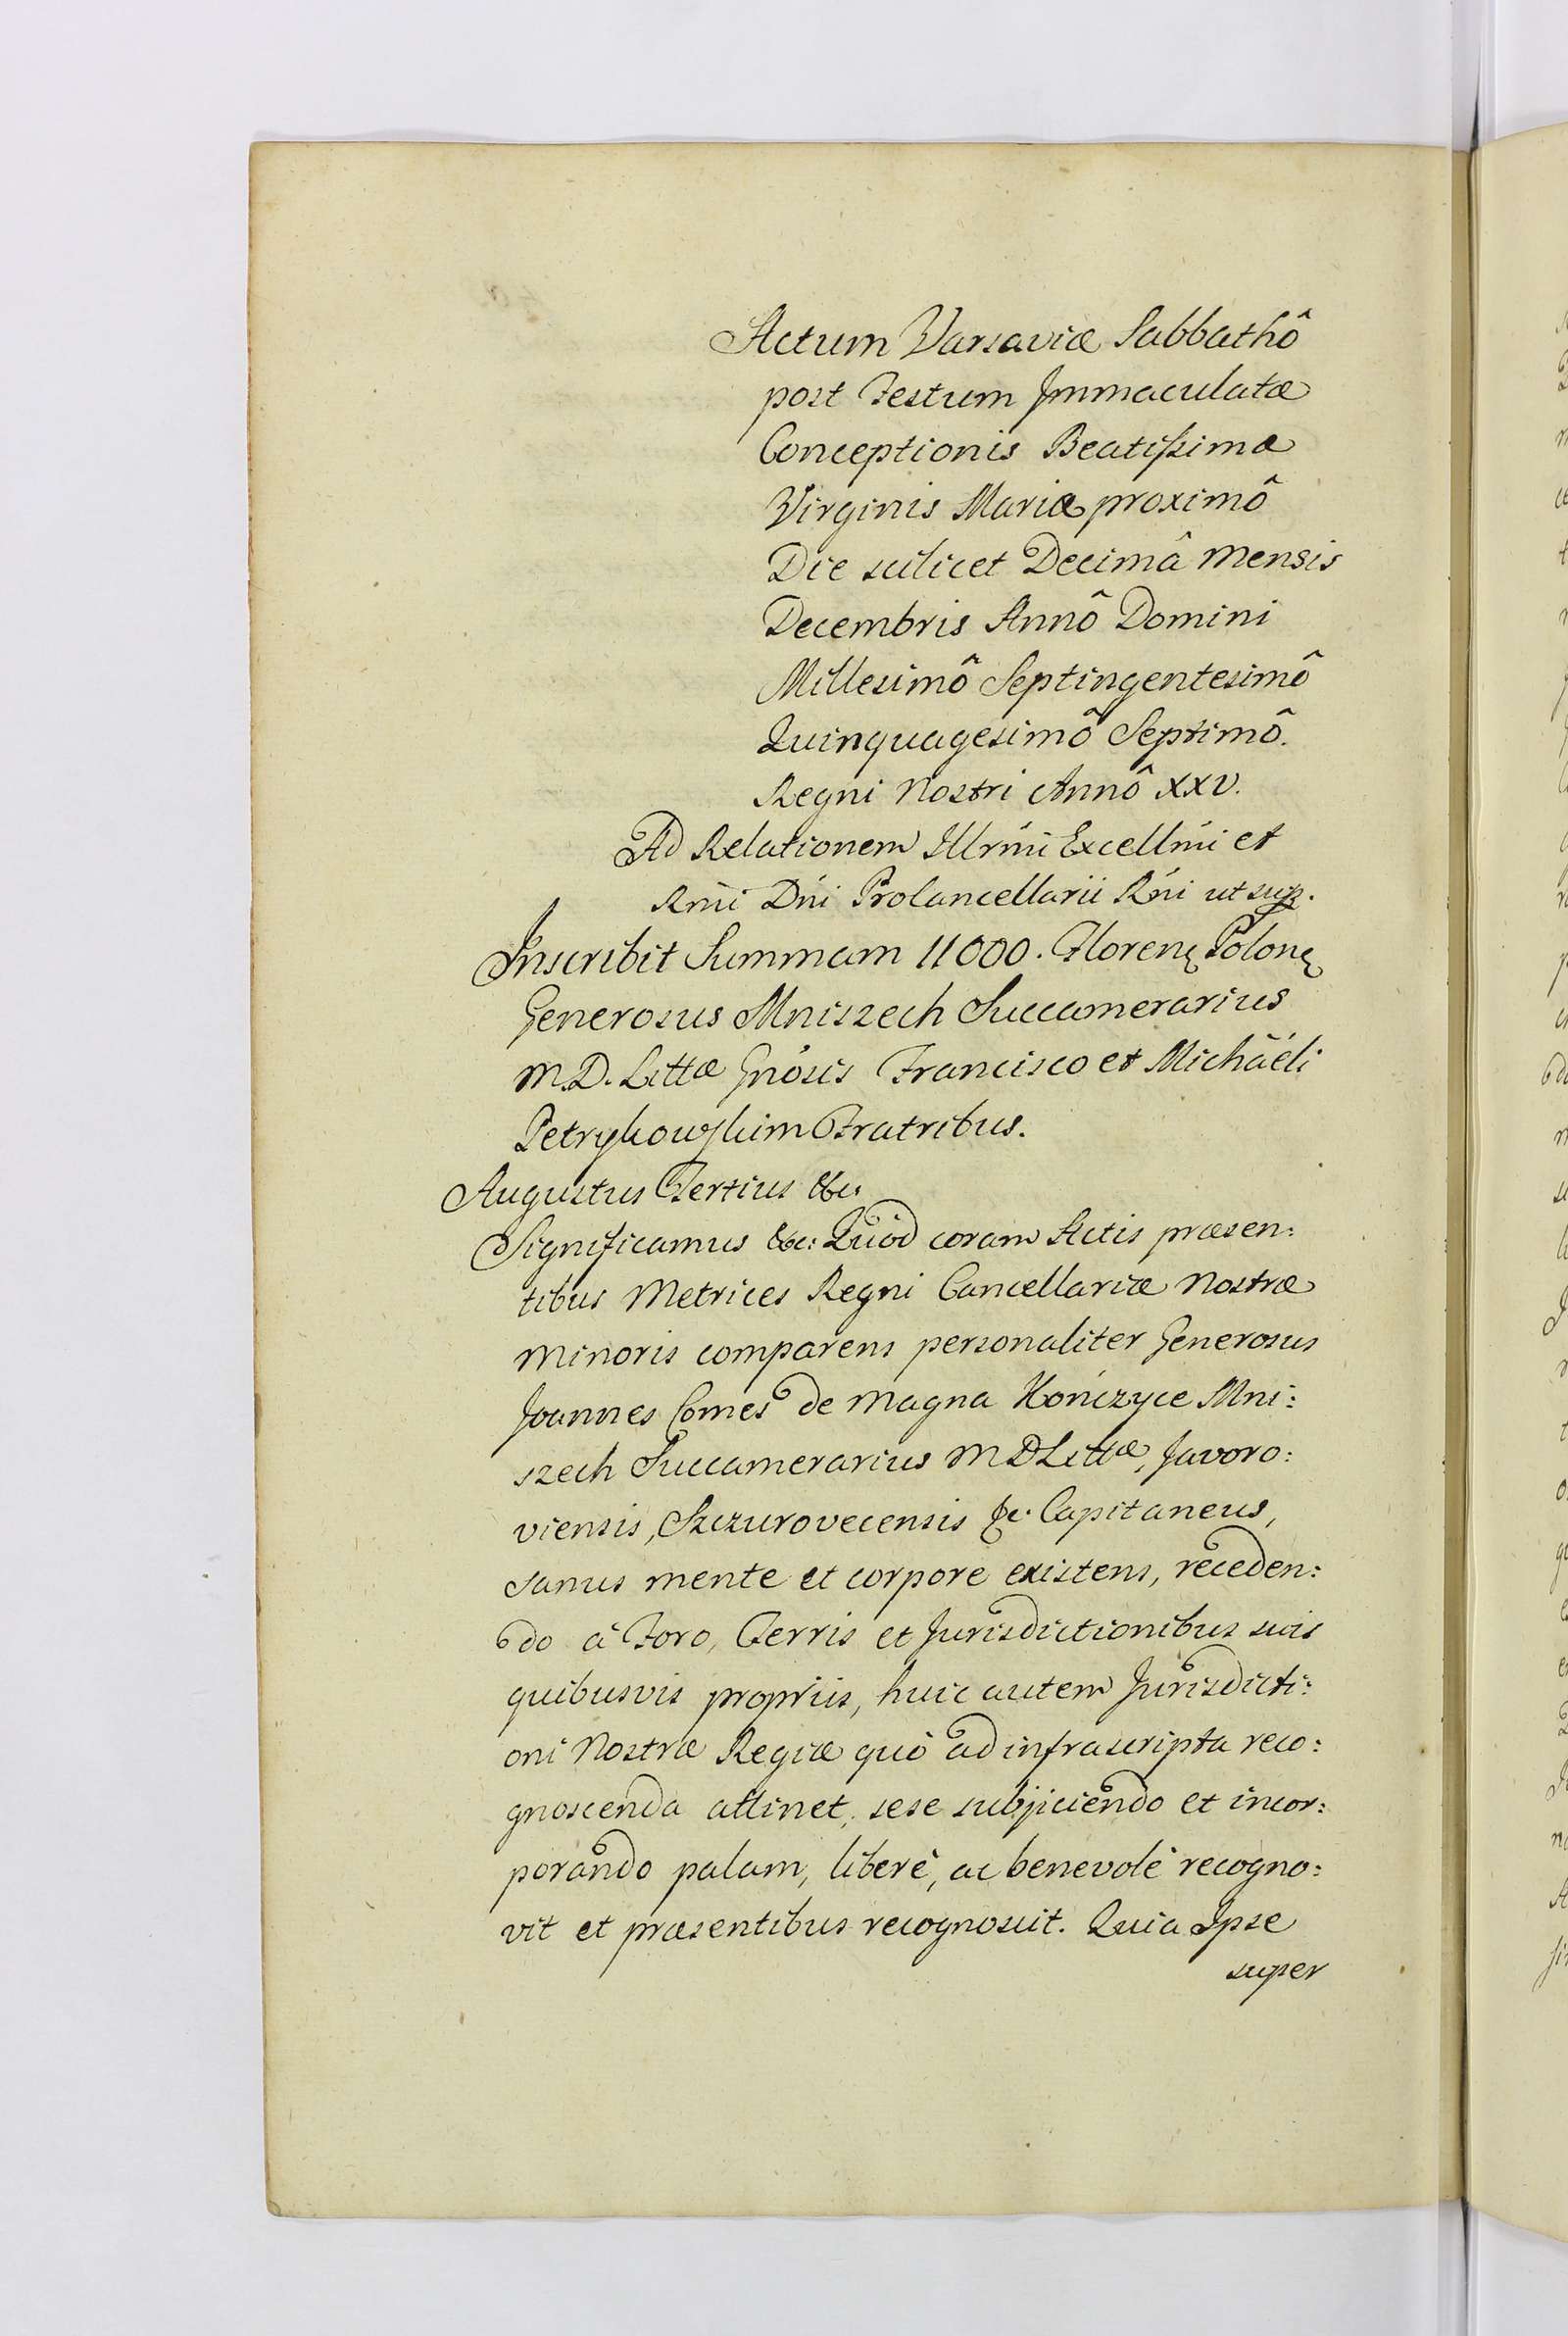 Actum Varsaviæ Sabbathô
post Festum Jmmaculatæ
Conceptionis Beatißimæ
Virginis Mariæ proximô
Die scilicet Decimâ Mensis
Decembris Annô Domini
Millesimô Septingentesimô
Quinquagesimô Septimô.
Regni Nostri Annô XXV.
Ad Relationem Illrm̃i Excellm̃i et
Rm̃i Dñi Procancellarii Rñi ut sup.
Jnscribit Summam 11000. Floren Polon
Generosus Mniszech Succamerarius
M.D. Littæ Gñosis Francisco et Michaéli
Petrykowskim Fratribus.
Augustus Tertius &c:
Significamus &c: Quòd coram Actis præsen:
tibus Metrices Regni Cancellariæ Nostræ
Minoris comparens personaliter Generosus
Joannes Comes de Magna Kończyce Mni:
szech Succamerarius M D Littæ, Javoro:
viensis, Szczurovecensis &c. Capitaneus,
sanus mente et corpore existens, receden:
do à Foro, Terris et Jurisdictionibus suis
quibusvis propriis, huic autem Jurisdicti:
oni Nostræ Regiæ quò ad infrascripta reco:
gnoscenda attinet, sese subjiciendo et incor:
porando palam, liberè, ac benevolè recogno:
vit et præsentibus recognoscit. Quia Ipse
super